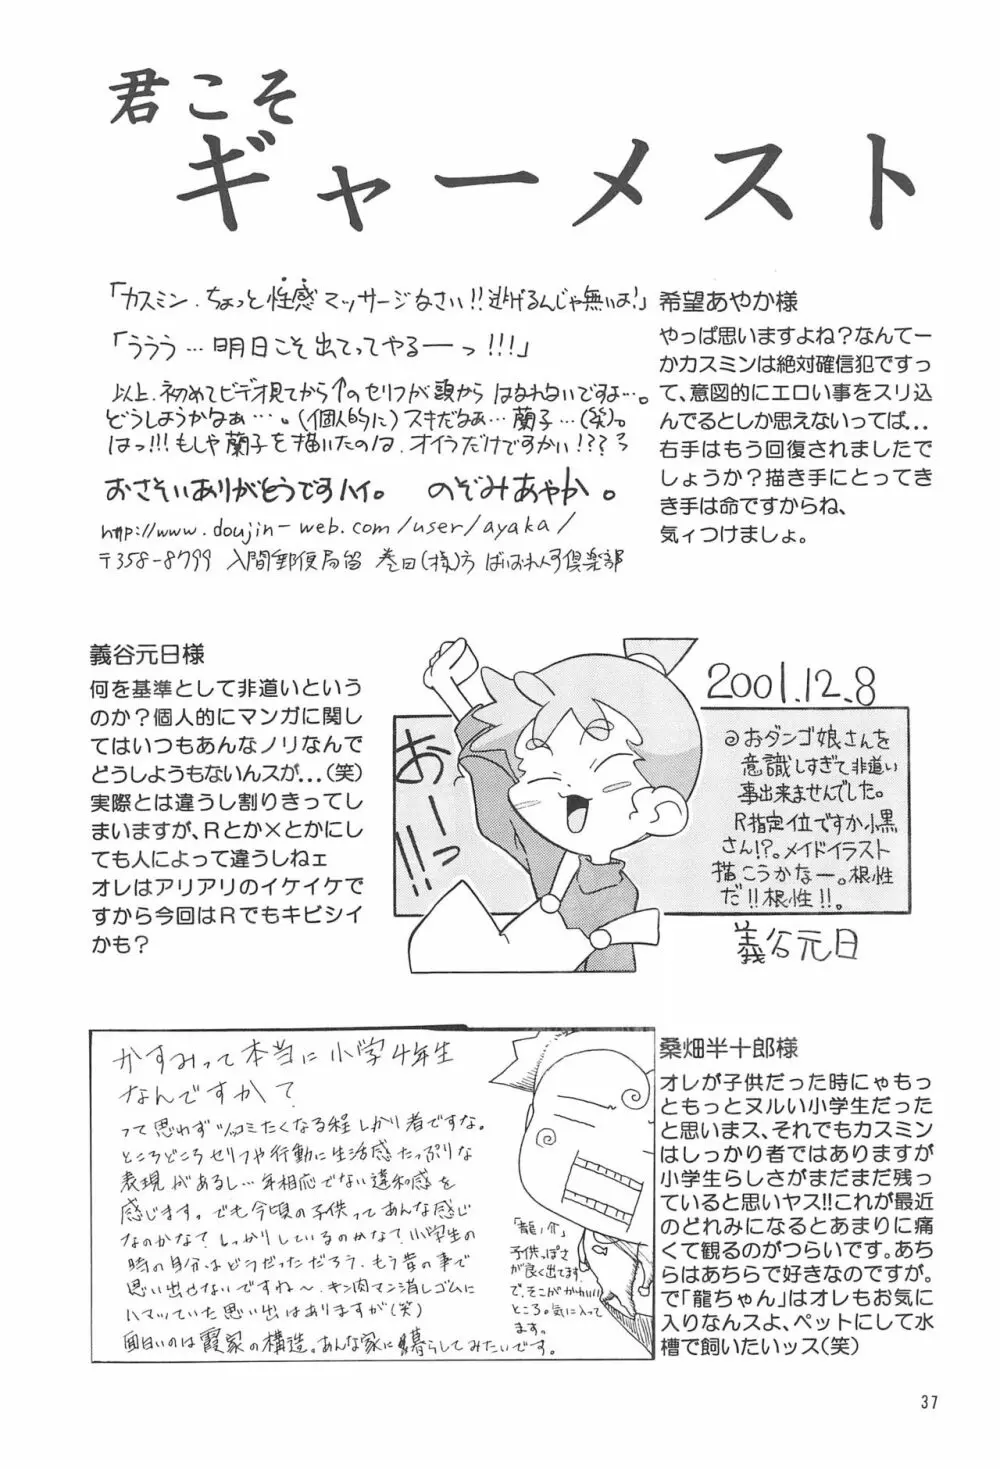 君こそ
ギャーメスト
「カスミン.ちょっと性感マッサージなさい!!逃げるんじゃ無いよ!」
「ううう…明日こそ出てってやるーっ!!!」
以上.初めてビデオ見てから↑のセリフが頭から はなれないですよ…。
どうしようかなぁ…。(個人的に)スキだなぁ…蘭子…(笑)。
はっ!!!もしや蘭子を描いたのは.オイラだけですかい!???
おさそいありがとうですハイ。 のぞみあやか。
http://www.doujin-web.com/user/ayaka/
〒358-8799 入間郵便局留 巻田(様)方 ばいおれんす倶楽部
希望あやか様
やっぱ思いますよね?なんてー
かカスミンは絶対確信犯ですっ
て、意図的にエロい事をスリ込
んでるとしか思えないってば…
右手はもう回復されましたで
しょうか?描き手にとってき
き手は命ですからね、
気ィつけましょ。
義谷元日様
何を基準として非道いという
のか?個人的にマンガに関し
てはいつもあんなノリなんで
どうしようもないんスが…(笑)
実際とは違うし割りきってし
まいますが、Rとか×とかにし
ても人によって違うしねェ
オレはアリアリのイケイケで
すから今回はRでもキビシイ
かも?
おーっ!!
2001.12.8
@おダンゴ娘さんを
意識しすぎて非道い
事出来ませんでした。
R指定位ですか小黒
さん!?。メイドイラスト
描こうかなー。根性
だ!!根性!!。
義谷元日
かすみって本当に小学4年生
なんですかて?
って思わずツッコミたくなる程しかり者ですな。
ところどころセリフや行動に生活感たっぷりな
表現があるし…年相応でない違和感を
感じます。でも今頃の子供ってあんな感じ
なのかなて?しっかりしているのかな?小学生の
時の自分はどうだっただろう、もう昔の事で
思い出せないですね〜.キン肉マン消しゴムに
ハマッていた思い出はありますが(笑)
面白いのは霞家の構造。あんな家に暮らしてみたいです。
「龍ノ介」
子供っぽさ
が良く出てます
で、そこがかわいい
ところ。気に入って
ます。
桑畑半十郎様
オレが子供だった時にゃもっ
ともっとヌルい小学生だった
と思いまス、それでもカスミン
はしっかり者ではありますが
小学生らしさがまだまだ残っ
ていると思いヤス!!これが最近
のどれみになるとあまりに痛
くて観るのがつらいです。あち
らはあちらで好きなのですが。
で「龍ちゃん」はオレもお気に
入りなんスよ、ペットにして水
槽で飼いたいッス(笑)
37